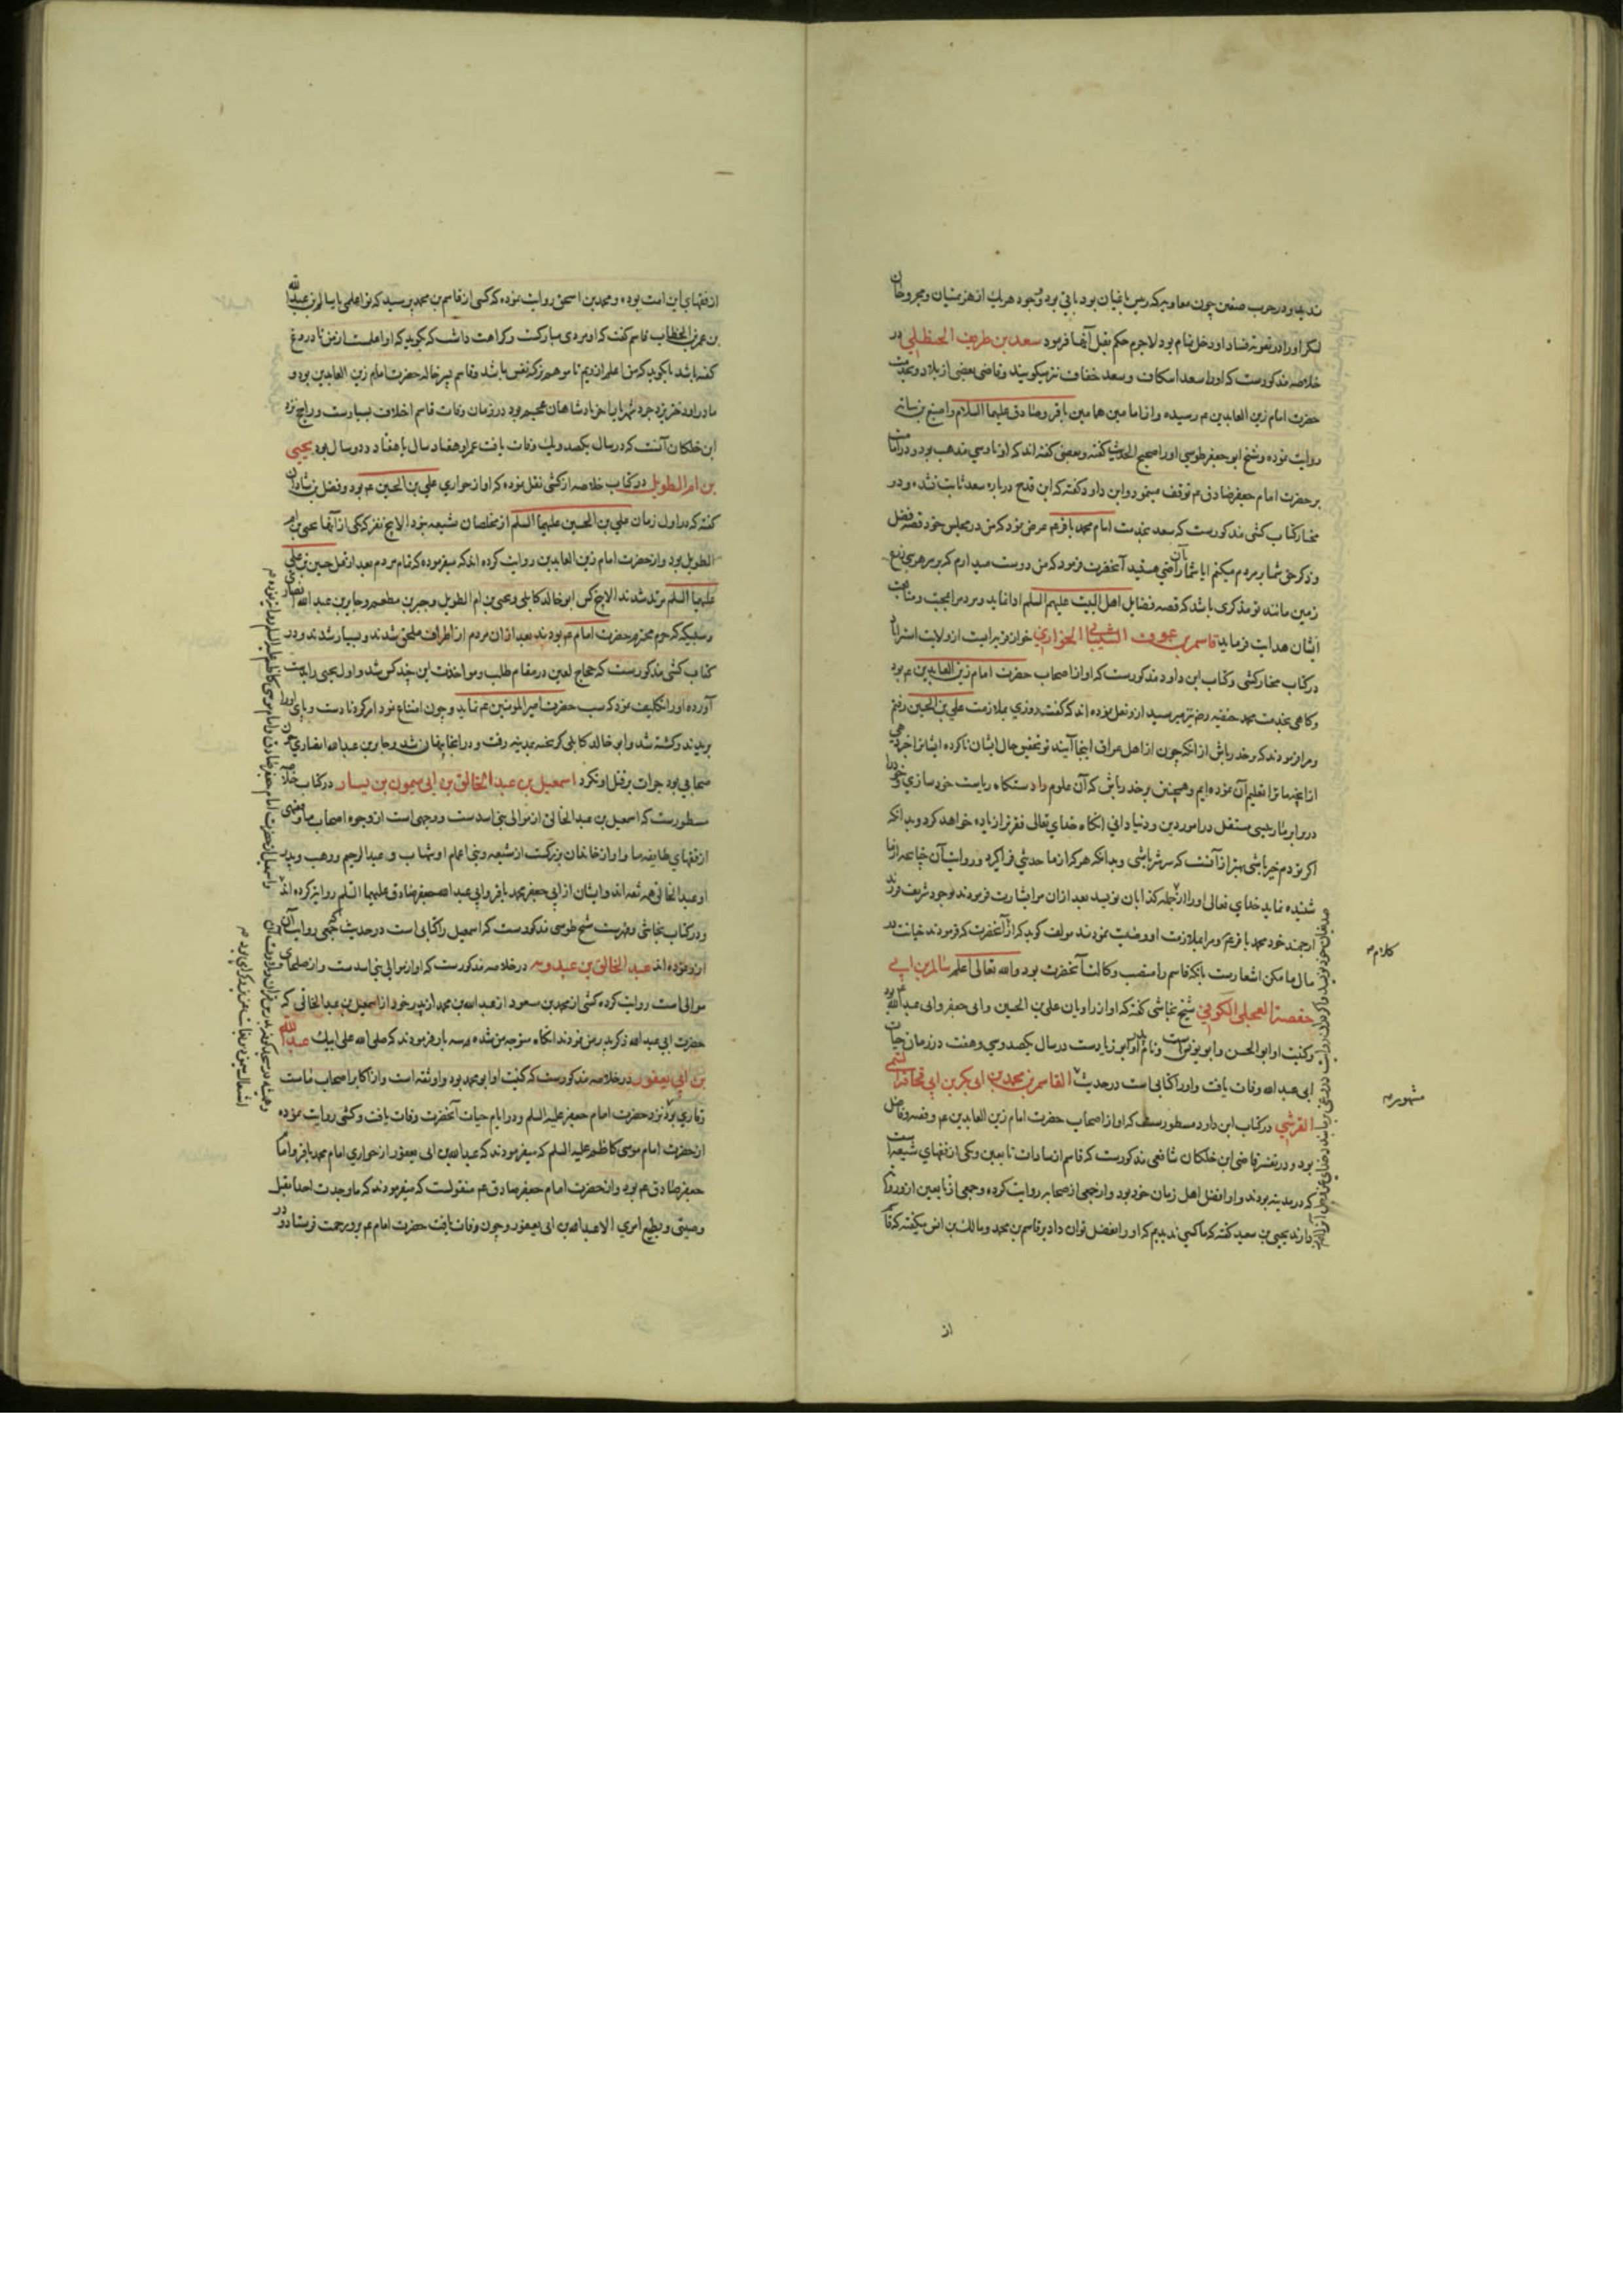 ندید و در حرب صفین چون معاویه که رئیس باغیان بود باقی بود وجود هر یک از هزیمتیان و مجروحان
لشکر او را در تقویت فساد او دخل تمام بود لاجرم حکم بقتل آنها فرمود سعد بن طریف الحنظلی در
خلاصه مذکورست که او را سعد اسکاف و سعد خفاف نیز میکویند و قاضی بعضی از بلاد و بخدمت
حضرت امام زین العابدین عم رسیده و از امامین همامین باقر و صادق علیهما السلام و اصبغ بن نباته
روایت نموده و شیخ ابو جعفر طوسی او را صحیح الحدیث کفته و بعضی کفته اند که او ناوسی مذهب بود و در امامت
بر حضرت امام جعفر صادق عم توقف مینمود و ابن داود کفته که این قدح درباره سعد ثابت نشده و در
مختار کتاب کشی مذکورست که سعد بخدمت امام محمد باقر عم عرض نمود که من در مجلس خود قصه فضل
و ذکر حق شما بر مردم میکنم ایا شما بآن راضی هستید آنحضرت فرمود که من دوست میدارم که بر سر هر سی ذرع
زمین مانند تو مذکری باشد که قصه فضایل اهل البیت علیهم السلم ادا نماید و مردم را بمحبت و متابعت
ایشان هدایت فرماید قاسم بن عوف الشیبانی الخواری خوار قریه ایست از ولایت استراباد
در کتاب مختار کشی و کتاب ابن داود مذکورست که او از اصحاب حضرت امام زین العابدین عم بود
و کاهی بخدمت محمد حنفیه رض نیز میرسید از و نقل نموده اند که کفت روزی بملازمت علی بن الحسین رفتم
و مرا فرمودند که بر حذر باش از انکه چون از اهل عراق اینجا آیند تو تفحص حال ایشان ناکرده ایشان را خبر دهی
از انچه ما ترا تعلیم آن نموده ایم و همچنین بر حذر باش که آن علوم را دستکاه ریاست خود سازی که خود را
در برابر ما رییسی مستقل در امور دین و دنیا دانی انکاه خدای تعالی فقر ترا زیاده خواهد کرد و بدانکه
اکر تو دم خیر باشی بهتر از آنست که سر شر باشی و بدانکه هر که از ما حدیثی فرا کیرد و روایت آن چنانچه از ما
شنیده نماید خدای تعالی او را از جمله کذابان نویسد بعد ازان مرا بشارت فرمودند بوجود شریف فرزند
ارجمند خود محمد باقر عم و مرا بملازمت او وصیت نمودند مولف کوید که از آنحضرت که فرمودند خیانت در
مال ما مکن اشعارست بانکه قاسم را منصب وکالت آنحضرت بود والله تعالی اعلم سالم بن ابی
حفصة العجلی الکوفی شیخ نجاشی کفته که او از راویان علی بن الحسین و ابی جعفر و ابی عبدالله عم بود
و کنیت او ابو الحسن و ابو یونس است و نام پدر او ابو زیادست در سال یکصد و سی و هفت در زمان حیات
ابی عبد الله وفات یافت و او را کتابی است در حدیث القاسم بن محمد بن ابی بکر بن ابی قحافة التیمی
القرشی در کتاب ابن داود مسطورست که او از اصحاب حضرت امام زین العابدین عم و فقیه و فاضل
بود و در تفسیر قاضی ابن خلکان شافعی مذکورست که قاسم از سادات تابعین و یکی از فقهای شیعه است
که در مدینه بودند و او افضل اهل زمان خود بود و از جمعی از صحابه روایت کرده و جمعی از تابعین از و روایت
دارند یحیی بن سعید کفته که ما کسی ندیدیم که او را بفضل توان داد بر قاسم بن محمد و مالک بن انس میکفته که قاسم
کلام
مشهور
از
از فقهای این امت بوده و محمد بن اسحق روایت نموده که کسی از قاسم بن محمد پرسید که تو اعلمی یا سالم بن عبد الله
بن عمر بن الخطاب قاسم کفت که او مردی مبارکست و کراهت داشت که بکوید که او اعلمست از من تا دروغ
کفته باشد یا بکوید که من اعلم از ویم تا موهم تزکیه نفس باشد و قاسم پسر خاله حضرت امام زین العابدین بود و
مادر او دختر یزدجرد شهریار اخر پادشاهان عجم بود در زمان وفات قاسم اختلاف بسیارست و راجح نزد
ابن خلکان آنست که در سال یکصد و یک وفات یافت عمر او هفتاد سال یا هفتاد و دو سال بود یحیی
بن ام الطویل در کتاب خلاصه از کشی نقل نموده که او از حواری علی بن الحسین عم بود و فضل بن شاذان
کفته که در اول زمان علی بن الحسین علیهما السلم از مخلصان شیعه نبود الا پنج نفر که یکی از آنها یحیی بن ام
الطویل بود و از حضرت امام زین العابدین روایت کرده اند که میفرموده که تمام مردم بعد از قتل حسین بن علی
علیهما السلم مرتد شدند الا پنج کس ابو خالد کابلی و یحیی بن ام الطویل و جبیر بن مطعم و جابر بن عبد الله انصاری
و سبیکه که حرم محترم حضرت امام عم بودند بعد ازان مردم از اطراف ملحق شدند و بسیار شدند و در
کتاب کشی مذکورست که حجاج لعین در مقام طلب و مواخذت این چند کس شد و اول یحیی را بدست
آورده او را تکلیف نمود که سب حضرت امیر المومنین عم نماید و چون امتناع نمود امر کرد تا دست و پای او را
بریدند و کشته شد و ابو خالد کابلی کریخته بمدینه رفت و در انجا پنهان شد و جابر بن عبد الله انصاری چون
صحابی بود جرات بر قتل او نکرد اسمعیل بن عبد الخالق بن ابی میمون بن یسار در کتاب خلاصه
مسطورست که اسمعیل بن عبد الخالق از موالی بنی اسدست و وجهی است از وجوه اصحاب ما و فقیهی
از فقهای طایفه ما و او از خاندان بزرکست از شیعه و بنی اعمام او شهاب و عبد الرحیم و وهب و پدر
او عبد الخالق همه ثقه اند و ایشان از ابی جعفر محمد باقر و ابی عبد الله جعفر صادق علیهما السلم روایت کرده اند
و در کتاب نجاشی و فهرست شیخ طوسی مذکورست که اسمعیل را کتابی است در حدیث که جمعی روایت آن
از و نموده اند عبد الخالق بن عبد ربه در خلاصه مذکورست که او از موالی بنی اسدست و از صلحای
موالی است روایت کرده کشی از محمد بن مسعود از عبد الله بن محمد از پدر خود از اسمعیل بن عبد الخالق که
حضرت ابی عبد الله ذکر پدر من نمودند انکاه متوجه من شده و سه بار فرمودند که صلی الله علی ابیک عبد الله
بن ابی یعفور در خلاصه مذکورست که کنیت او ابو محمد بود و او ثقه است و از اکابر اصحاب ماست
و قاری بود نزد حضرت امام جعفر علیه السلم و در ایام حیات آنحضرت وفات یافت و کشی روایت نموده
از حضرت امام موسی کاظم علیه السلم که میفرمودند که عبد الله بن ابی یعفور از حواری امام محمد باقر و امام
جعفر صادق عم بود و از حضرت امام جعفر صادق عم منقولست که میفرمودند که ما وجدت احدا یقبل
وصیتی و یطیع امری الا عبد الله بن ابی یعفور و چون وفات یافت حضرت امام عم برو رحمت فرستاد و در